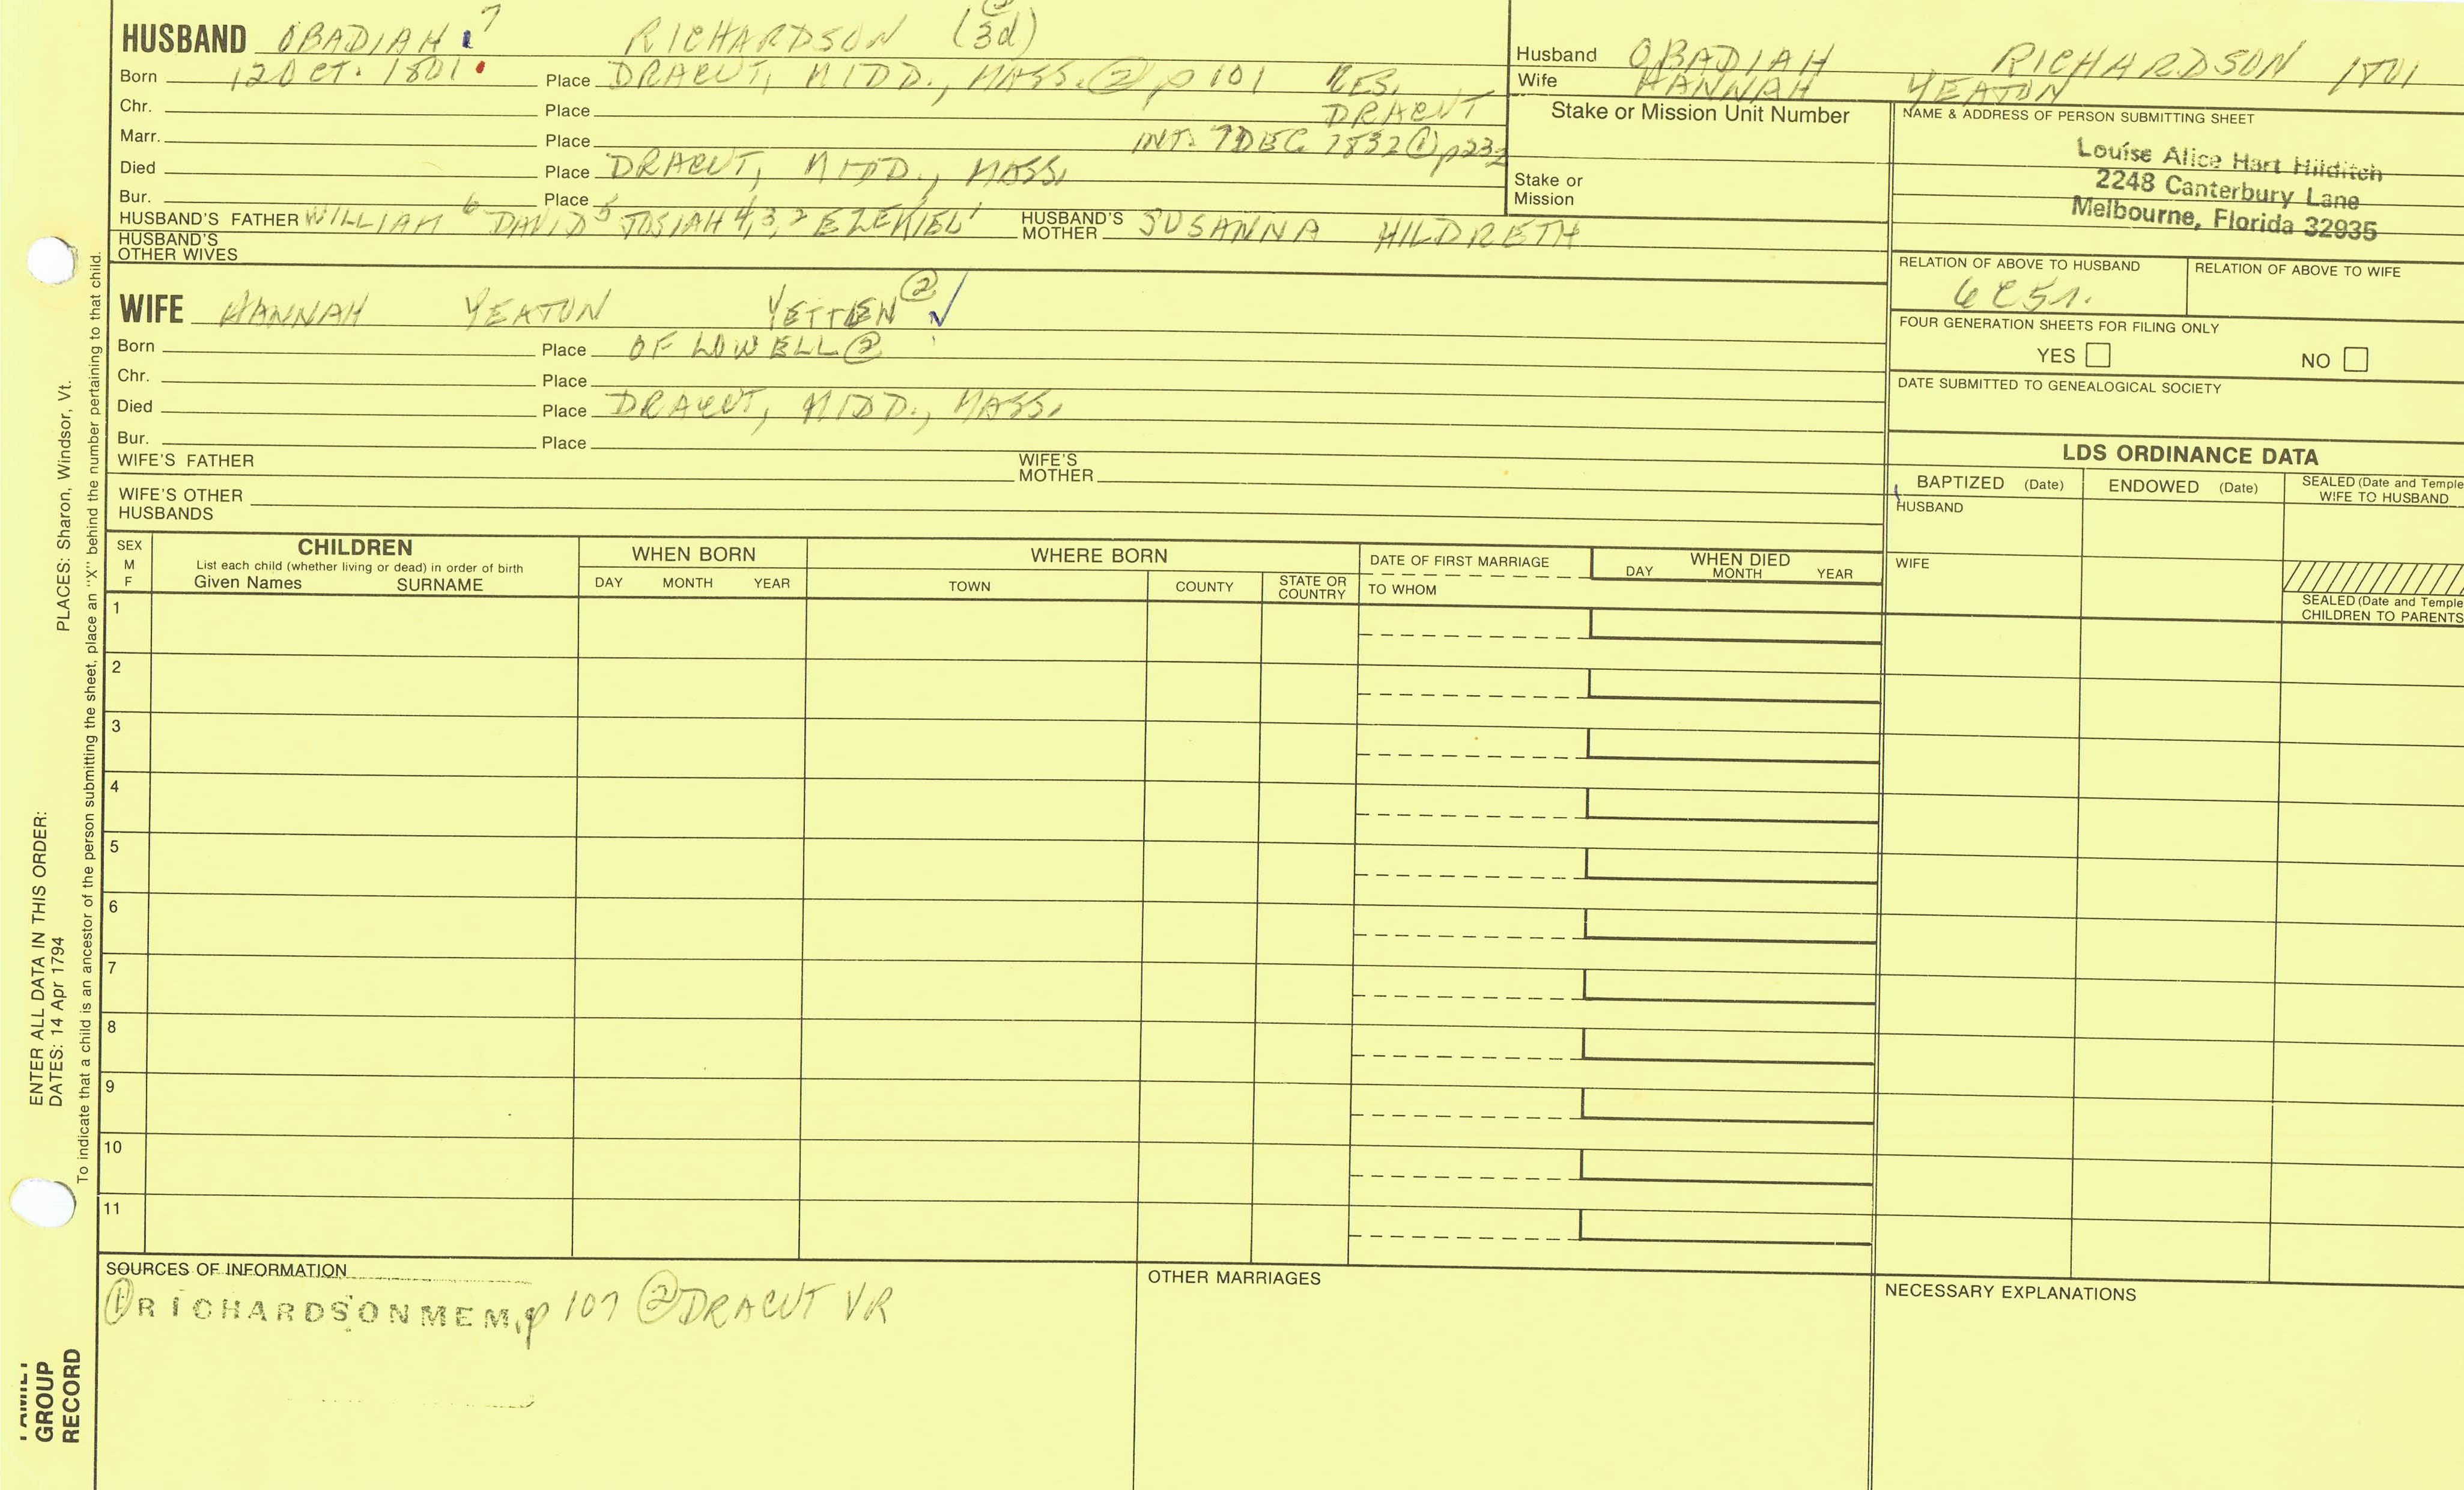 HUSBAND OBADIAH 7 RICHARDSON (3d)
Born 12 OCT. 1801 Place DRACUT, MIDD., MASS. ② p 101 RES. DRACUT
Chr. Place
Marr. Place INT. 7 DEC 1832 ① p232
Died Place DRACUT, MIDD., MASS.
Bur. Place
HUSBAND'S FATHER WILLIAM 6 DAVID 5 JOSIAH 4,3,2 EZEKIEL 1 HUSBAND'S MOTHER SUSANNA HILDRETH
HUSBAND'S OTHER WIVES
WIFE HANNAH YEATON YETTEN ② ✓
Born Place OF LOWELL ②
Chr. Place
Died Place DRACUT, MIDD., MASS.
Bur. Place
WIFE'S FATHER WIFE'S MOTHER
WIFE'S OTHER HUSBANDS
Husband OBADIAH RICHARDSON 1801
Wife HANNAH YEATON
Stake or Mission Unit Number
Stake or Mission
NAME & ADDRESS OF PERSON SUBMITTING SHEET
Louise Alice Hart Hilditch
2248 Canterbury Lane
Melbourne, Florida 32935
RELATION OF ABOVE TO HUSBAND RELATION OF ABOVE TO WIFE
6C5r.
FOUR GENERATION SHEETS FOR FILING ONLY
YES NO
DATE SUBMITTED TO GENEALOGICAL SOCIETY
LDS ORDINANCE DATA
BAPTIZED (Date) ENDOWED (Date) SEALED (Date and Temple
WIFE TO HUSBAND
HUSBAND
WIFE
SEALED (Date and Temple
CHILDREN TO PARENTS
SEX M F
CHILDREN
List each child (whether living or dead) in order of birth
Given Names SURNAME
WHEN BORN
DAY MONTH YEAR
WHERE BORN
TOWN COUNTY STATE OR COUNTRY
DATE OF FIRST MARRIAGE
TO WHOM
WHEN DIED
DAY MONTH YEAR
1
2
3
4
5
6
7
8
9
10
11
SOURCES OF INFORMATION
① RICHARDSON MEM, p 107 ② DRACUT VR
OTHER MARRIAGES
NECESSARY EXPLANATIONS
ENTER ALL DATA IN THIS ORDER:
DATES: 14 Apr 1794 PLACES: Sharon, Windsor, Vt.
To indicate that a child is an ancestor of the person submitting the sheet, place an "X" behind the number pertaining to that child.
FAMILY
GROUP
RECORD